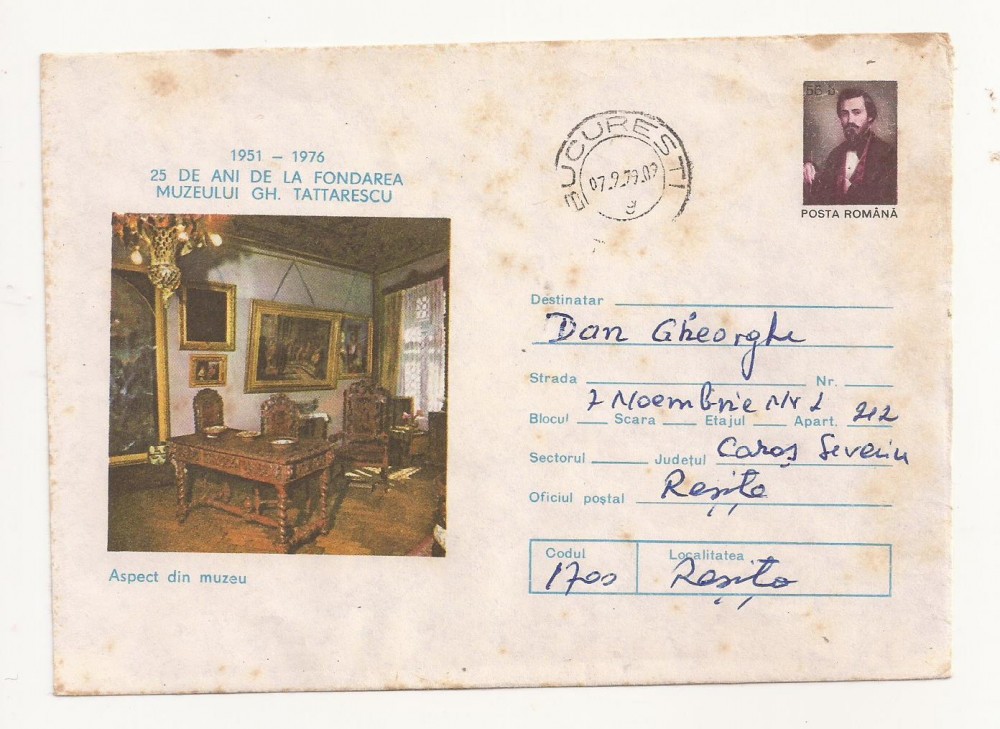 1951 – 1976
25 DE ANI DE LA FONDAREA
MUZEULUI GH. TATTARESCU
Aspect din muzeu
BUCUREȘTI
07.9.79.09
g
POSTA ROMÂNĂ
Destinatar
Dan Gheorghe
Strada Nr.
7 Noembrie Nr 2 212
Blocul Scara Etajul Apart.
Sectorul Județul Caraș Severin
Oficiul poștal Reșița
Codul Localitatea
1700 Reșița